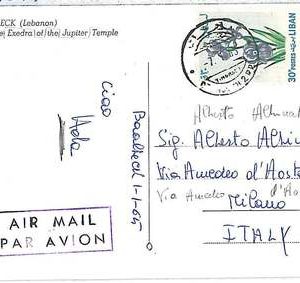 ECK (Lebanon)
e Exedra of the Jupiter Temple
LIBAN
30P
Ciao
Ada
Baalbeck 1-1-65
Alberto
Sig. Alberto
Via Amedeo d'Aosta
Via Amedeo d'
Milano
ITALY
AIR MAIL
PAR AVION